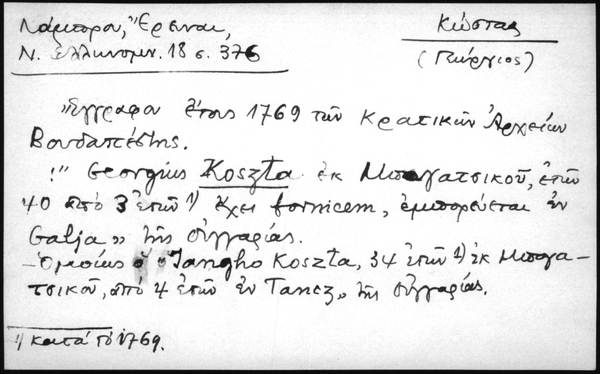 Λάμπρου, "Ερευναι, Κώστας
Ν. Ἑλληνομν. 18 σ. 376 (Γεώργιος)
Ἔγγραφον ἔτους 1769 τῶν κρατικῶν Ἀρχείων
Βουδαπέστης.
!" Georgius Koszta ἐκ Μπογατσικοῦ, ἐτῶν
40 ἀπό 3 ἐτῶν 1) ἔχει fornicem, ἐμπορεύεται ἐν
Galja" τῆς Οὑγγαρίας.
-Ὁμοίως ὁ "Jangho Koszta, 34 ἐτῶν 1) ἐκ Μπογα-
τσικοῦ, ἀπό 4 ἐτῶν ἐν Tancz" τῆς Οὑγγαρίας.
1) κατά τό 1769.